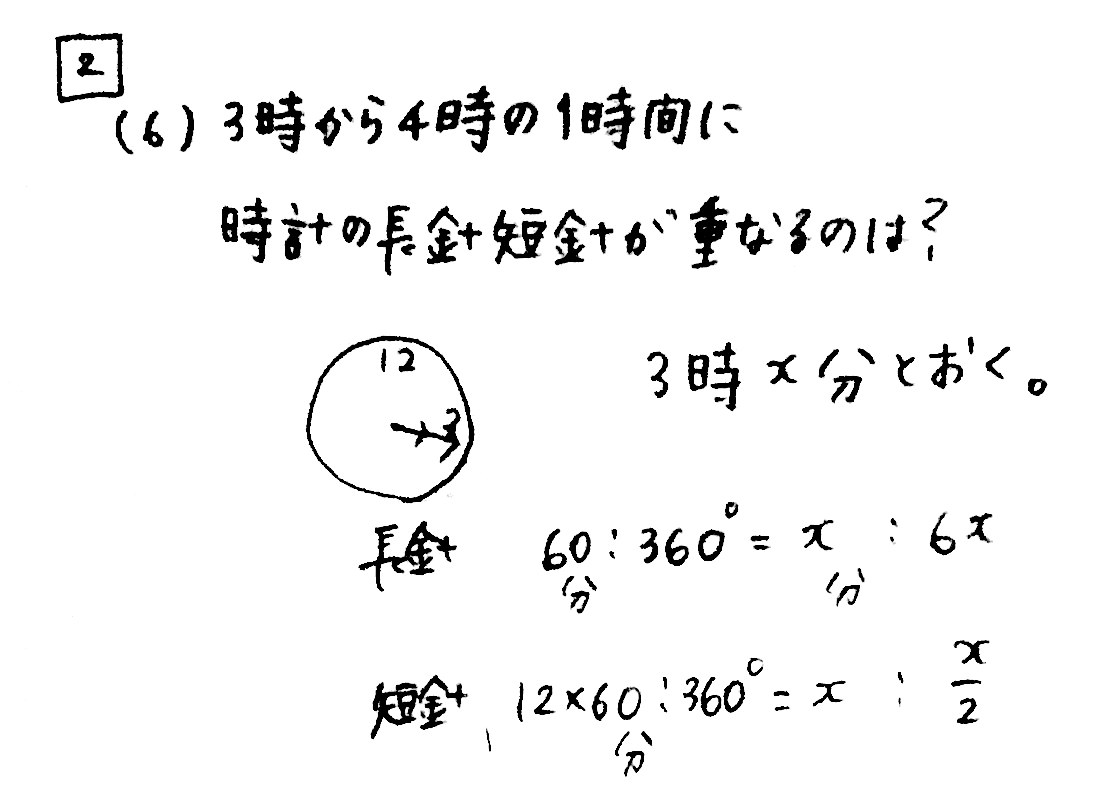 2
(6) 3時から4時の1時間に
時計の長針短針が重なるのは?
12
3
3時x分とおく。
長針 60:360°= x : 6x
分 分
短針 12×60:360°= x : x/2
分